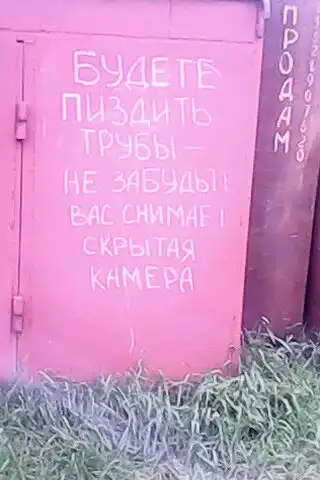 БУДЕТЕ
ПИЗДИТЬ
ТРУБЫ —
НЕ ЗАБУДЬТЕ
ВАС СНИМАЕТ
СКРЫТАЯ
КАМЕРА
ПРОДАМ